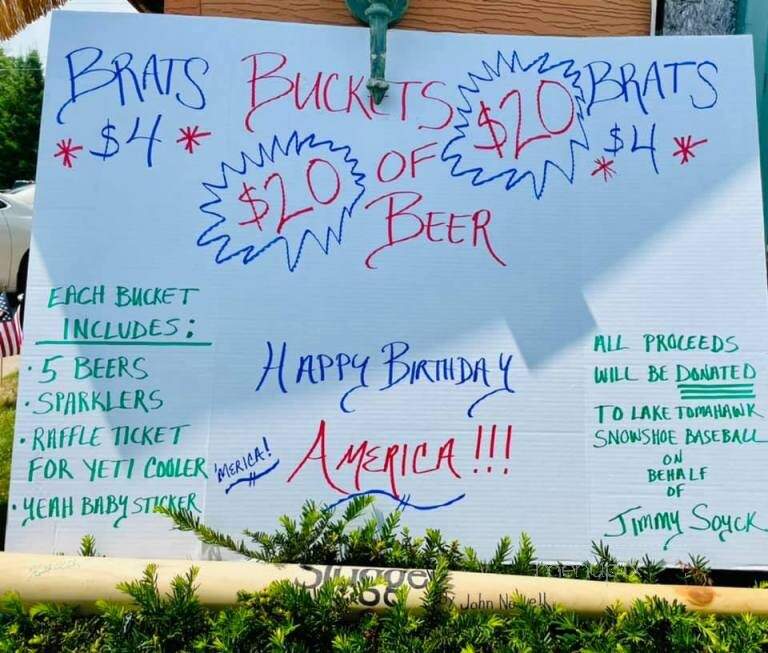 BRATS
* $4 *
BUCKETS
$20 OF $20
BEER
BRATS
* $4 *
EACH BUCKET
INCLUDES:
· 5 BEERS
· SPARKLERS
· RAFFLE TICKET
FOR YETI COOLER
· YEAH BABY STICKER
HAPPY BIRTHDAY
'MERICA!
AMERICA!!!
ALL PROCEEDS
WILL BE DONATED
TO LAKE TOMAHAWK
SNOWSHOE BASEBALL
ON
BEHALF
OF
Jimmy Soyck
Slugge
John